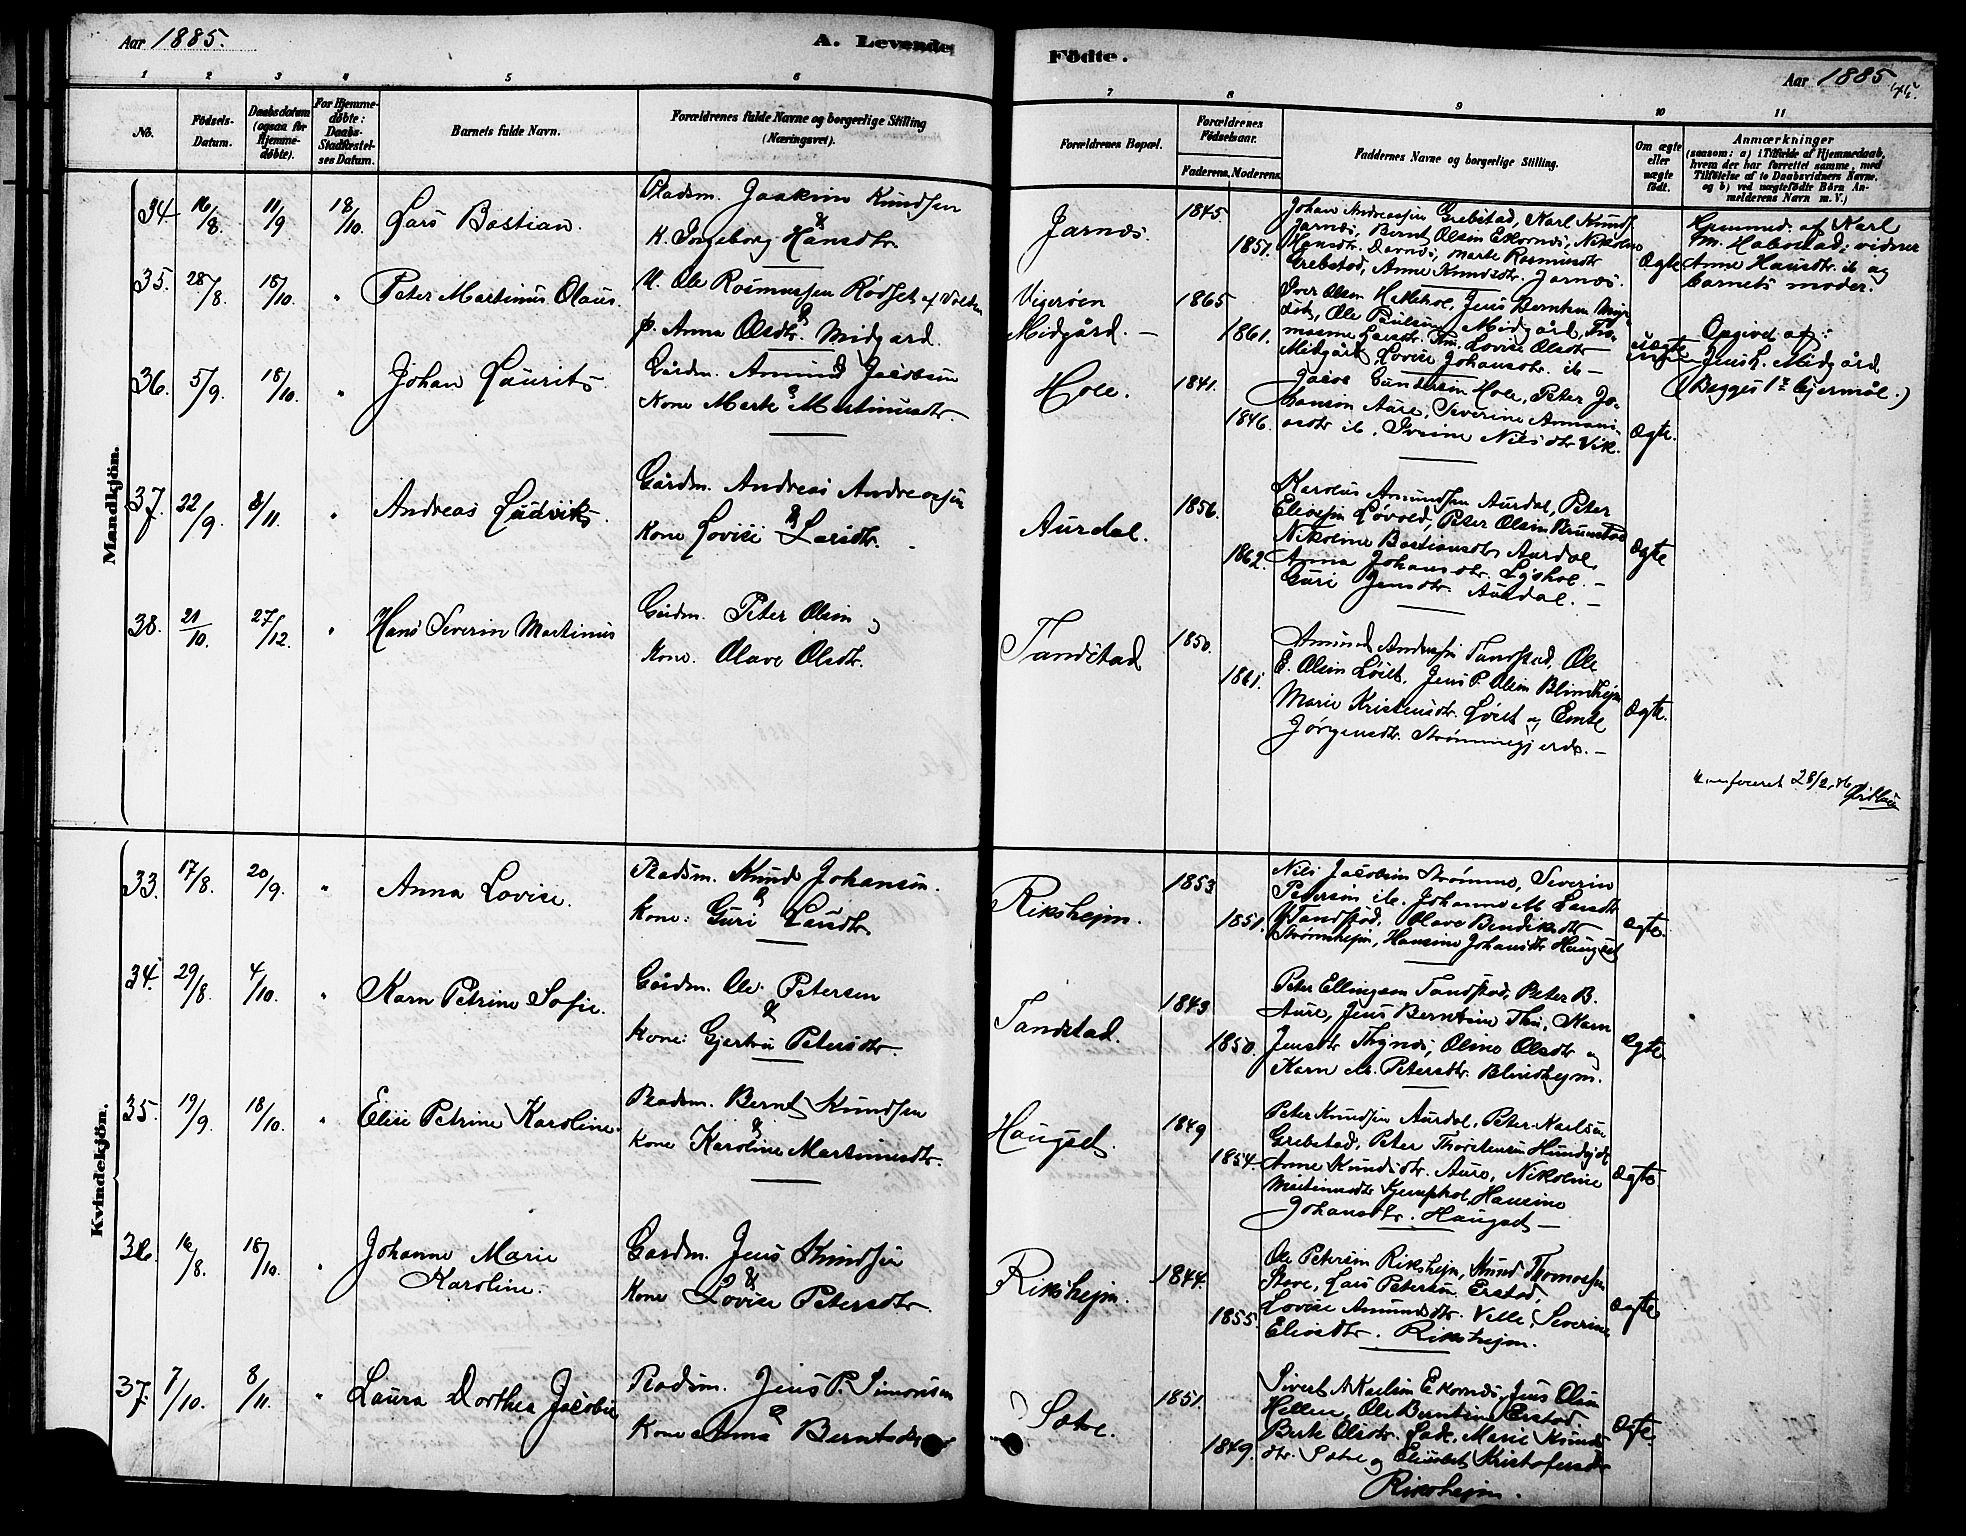 Aar 1885.
A. Levende
Födte.
Aar 1885
1 2 3 4 5 6
7 8 9 10 11
No.
Födsels-
Datum.
Daabsdatum
(ogsaa for
Hjemme-
döbte).
For Hjemme-
döbte:
Daabs-
Stadfæstel-
ses Datum.
Barnets fulde Navn.
Forældrenes fulde Navne og borgerlige Stilling
(Næringsvei).
Forældrenes Bopæl.
Forældrenes
Födselsaar.
Faderens. Moderens.
Faddernes Navne og borgerlige Stilling.
Om ægte
eller
uægte
födt.
Anmærkninger
(saasom: a) i Tilfælde af Hjemmedaab,
hvem der har forrettet samme, med
Tilföielse af to Daabsvidners Navne,
og b) ved uægtefödte Börn An-
melderens Navn m. V.)
Mandkjön.
34 16/8 11/9 18/10. Lars Bastian.
Pladsm. Joakim Knudsen
&
K. Ingeborg Hansdtr.
Jarnæs. 1845. 1851.
Johan Andreassen Grebstad, Karl Knuds.
Jarnæs, Bernt Olsen Ekornæs, Nikoline
Hansdtr. Jarnæs, Marte Rasmusdtr
Grebstad, Anne Knudsdtr. Jarnæs.
Ægte
Hjemmed. af Karl
Anne Hansdtr. ib og
barnets moder.
35. 28/8 18/10. " Peter Martinus Olaus.
U. Ole Rasmussen Rødset af Volden
&
p. Anna Olsdtr. Midgard.
Vigerøen
Midgård. —
1865 1861.
Iver Olsen
Ole Paulsen Midgård,
Larsdtr. Lovise Olsdtr
Midgård Lovise Johansdtr. ib —
uægte
Opgivet af:
Jens L. Midgård
(Begges 1ste Lejermål.)
36. 5/9. 18/10. " Johan Laurits
Gårdm. Amund Jacobsen
&
Kone Marte Martinusdtr.
Hole. 1841. 1846.
Jacob Gundersen Hole, Peter Jo-
hansen Aure, Severine Amuns-
osdtr ib, Nilsdtr Vik.
Ægte.
37. 22/9. 8/11. " Andreas Ludvik.
Gårdm. Andreas Andreassen
&
Kone Lovise Larsdtr.
Aurdal. 1856. 1862.
Karolus Amundsen Aurdal, Peter
Eliasen Løvold, Peter Olsen Brunstad
Nikoline Bastiansdtr Aurdal,
Anna Johansdtr. —
Guri Jensdtr. Aurdal. —
Ægte
38. 21/10. 27/12. " Hans Severin Martinus
Gårdm. Peter Olsen
&
Kone. Olave Olsdtr.
Tandstad 1850. 1861.
Amund Andersen Tandstad, Ole
E. Olsen Løset, Jens P. Olsen Blindhejm
Marie Kristensdtr. Løset og
Jørgensdtr. Strømmegjerde. —
Ægte.
28/2. 86
Kvindekjön.
33. 17/8. 20/9. " Anna Lovise.
Pladsm. Knud Johansen.
&
Kone: Guri Larsdtr
Rikshejm. 1853 1851.
Nils Jacobsen Strømme, Severin
Petersen ib. Johanne M. Larsdtr
Tandstad, Olave Bendiksdtr
Strømshejm, Hansine Johansdtr Haugset
ægte.
34. 29/8. 4/10. " Karn Petrine Sofie.
Gårdm. Ole Petersen
&
Kone: Gjertru Petersdtr.
Tandstad. 1843 1850.
Peter Ellingsen Tandstad, Peter B.
Aure, Jens Berntsen Thu, Karn
Jensdtr Thynæs, Oline Olsdtr og
Karn M. Petersdtr. Blindhejm.
Ægte.
35. 19/9. 18/10. " Elise Petrine Karoline.
Pladsm. Bernt Knudsen
&
Kone Karoline Martinusdtr.
Haugset. 1849 1854.
Peter Knudsen Aurdal, Peter Karlsen
Grebstad, Peter Thorstensen
Anne Knudsdtr. Aure, Nikoline
Martinusdtr Hansine
Johansdtr. Haugset —
Ægte.
36. 16/8. 18/10. " Johanne Marie
Karoline.
Gardm. Jens Knudsen
&
Kone Lovise Petersdtr.
Rikshejm. 1844. 1855.
Ole Petersen Rikshejm, Knud Thomassen
Stave, Lars Petersen Erstad,
Lovise Amundsdtr. Velle, Severine
Eliasdtr. Rikshejm.
Ægte.
37. 7/10. 8/11. " Laura Dorthea Jacobie
Pladsm. Jens P. Simonsen
&
Kone Anna Berntsdtr
Satre. 1851. 1849.
Sivert A Karlsen Ekornæs, Jens Olsen
Hellen, Ole Berntsen Erstad,
Berte Olsdtr. Marie Knuds-
dtr. Satre og Elisabet Kristofersdtr
Rikshejm.
Ægte.